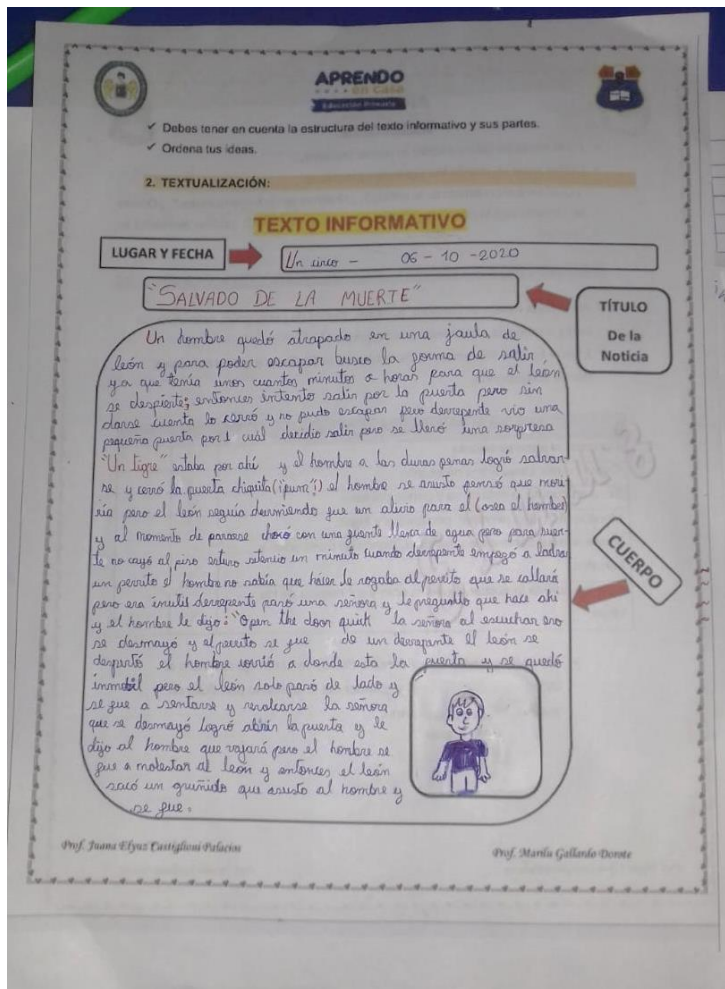 APRENDO
en casa
Educación Primaria
✓ Debes tener en cuenta la estructura del texto informativo y sus partes.
✓ Ordena tus ideas.
2. TEXTUALIZACIÓN:
TEXTO INFORMATIVO
LUGAR Y FECHA
Un cinco - 06 - 10 - 2020
"SALVADO DE LA MUERTE"
TÍTULO
De la
Noticia
Un hombre quedó atrapado en una jaula de
león y para poder escapar busco la forma de salir,
ya que tenía unos cuantos minutos o horas para que el león
se despierte; entonces intento salir por la puerta pero sin
darse cuenta lo cerró y no pudo escapar pero derrepente vio una
pequeña puerta por l cual decidio salir pero se llevó una sorpresa
"Un tigre" estaba por ahí y el hombre a las duras penas logró salvar
se y cerró la puerta chiquita (¡pum!) el hombre se asusto pensó que mori
ría pero el león seguía durmiendo fue un alivio para el (osea el hombre)
y al momento de pararse chocó con una fuente llena de agua pero para suer-
te no cayó al piso estuvo atencio un minuto cuando derrepente empezó a ladra
un perrito el hombre no sabía que hacer le rogaba al perrito que se callará
pero era inutil derrepente paró una señora y le pregunto que hace ahi
y el hombre le dijo: "Open the door quick la señora al escuchar eso
se desmayó y el perrito se fue de un derrepente el león se
despertó el hombre corrió a donde esta la puerta y se quedó
inmobil pero el león solo paró de lado y
se fue a sentarse y revolcarse la señora
que se desmayó logró abrir la puerta y le
dijo al hombre que vajará pero el hombre se
fue a molestar al león y entonces el león
sacó un gruñido que asusto al hombre y
se fue.
CUERPO
Prof. Juana Elyuz Castiglioni Palacios
Prof. Marilú Gallardo Dorote